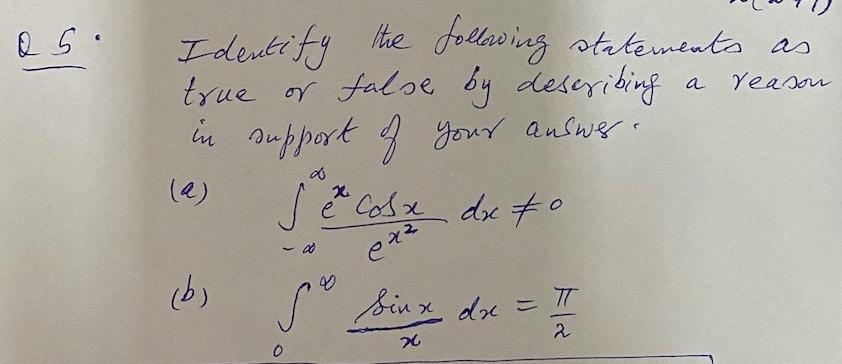 Q 5.
Identify the following statements as
true or false by describing a reason
in support of your answer.
(a) ∫_{-∞}^{∞} \frac{e^x Cos x}{e^{x^2}} dx ≠ 0
(b) ∫_0^∞ \frac{Sin x}{x} dx = \frac{π}{2}